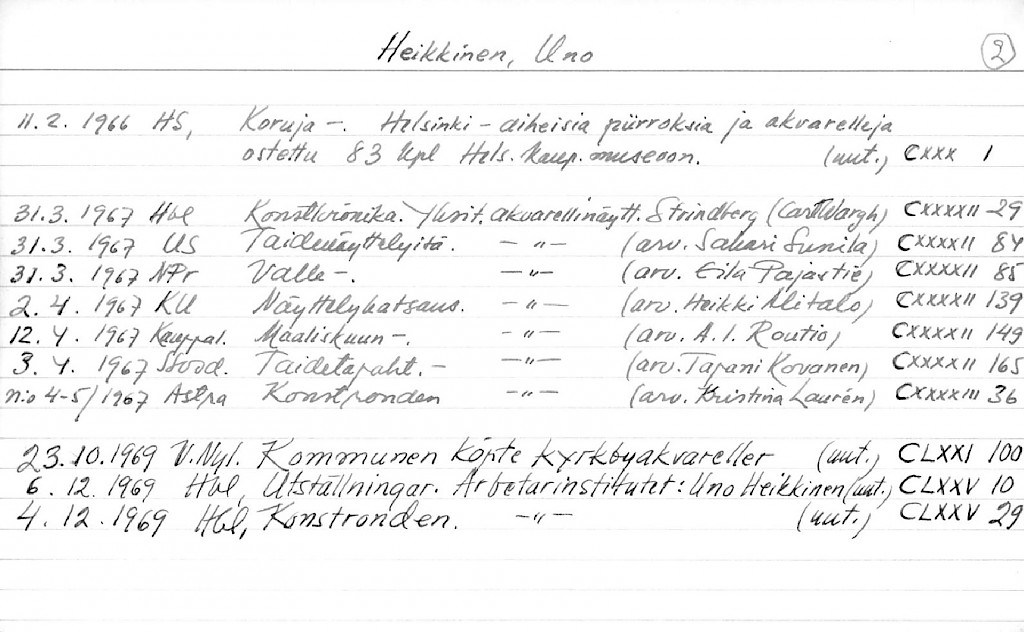 Heikkinen, Uno 2
11.2. 1966 HS, Koruja -. Helsinki-aiheisia piirroksia ja akvarelleja
ostettu 83 kpl Hels. kaup. museoon. (uut.) CXXX 1
31.3. 1967 Hbl Konstkrönika. Yksit. akvarellinäytt. Strindberg (Carl Wargh) CXXXXII 29
31.3. 1967 US Taidenäyttelyitä. -"- (arv. Sakari Sunila) CXXXXII 84
31.3. 1967 NPr Valle -. -"- (arv. Eila Pajastie) CXXXXII 85
2.4. 1967 KU Näyttelykatsaus. -"- (arv. Heikki Alitalo) CXXXXII 139
12.4. 1967 Kauppal. Maaliskuun -. -"- (arv. A.I. Routio) CXXXXII 149
3.4. 1967 Stood. Taidetapaht. - -"- (arv. Tapani Kovanen) CXXXXII 165
n:o 4-5/1967 Astra Konstronden -"- (arv. Kristina Laurén) CXXXXIII 36
23.10.1969 V.Nyl. Kommunen köpte kyrkbyakvareller (uut.) CLXXI 100
6.12.1969 Hbl, Utställningar. Arbetarinstitutet: Uno Heikkinen (uut.) CLXXV 10
4.12.1969 Hbl, Konstronden. -"- (uut.) CLXXV 29